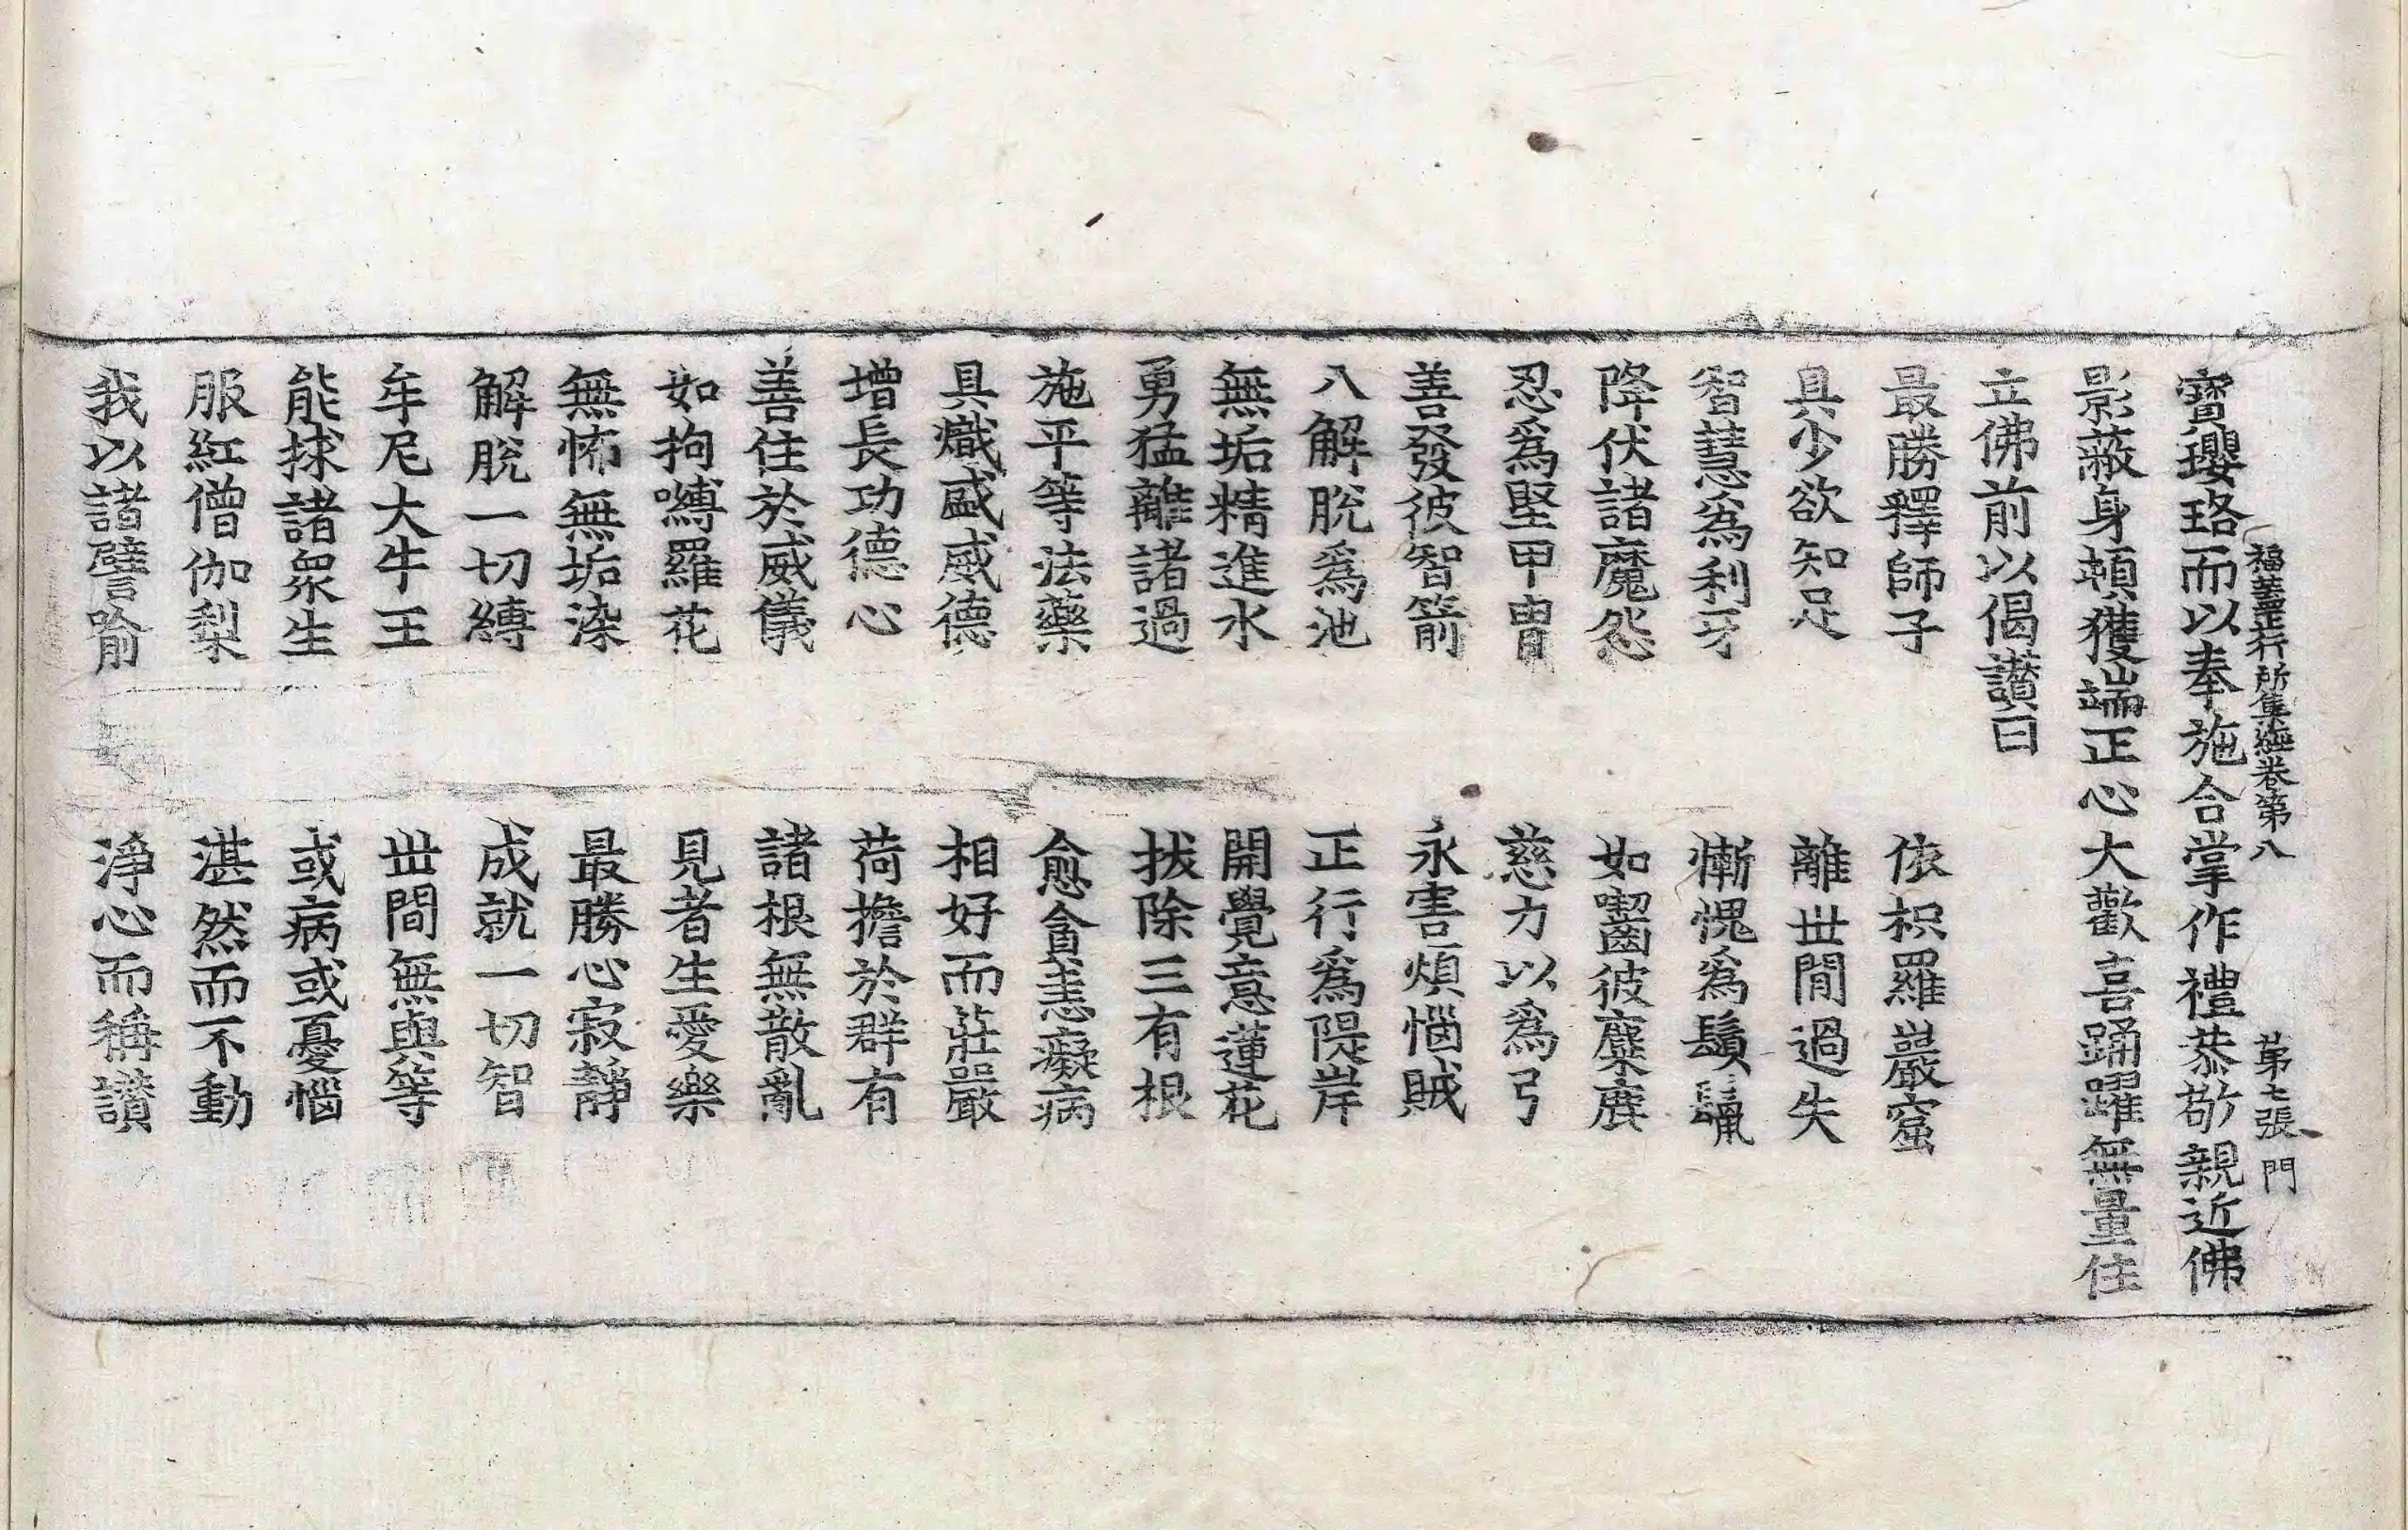 福蓋正行所集經卷第八　第七張　門
寶瓔珞而以奉施合掌作禮恭敬親近佛
影蔽身頓獲端正心大歡喜踊躍無量住
立佛前以偈讃曰
最勝釋師子　依枳羅巖窟
具少欲知足　離世間過失
智慧爲利牙　慚愧爲鬚鬣
降伏諸魔怨　如齧彼麋鹿
忍爲堅甲冑　慈力以爲弓
善發彼智箭　永害煩惱賊
八解脫爲池　正行爲隄岸
無垢精進水　開覺意蓮花
勇猛離諸過　拔除三有根
施平等法藥　愈貪恚癡病
具熾盛威德　相好而莊嚴
增長功德心　荷擔於群有
善住於威儀　諸根無散亂
如拘嚩羅花　見者生愛樂
無怖無垢染　最勝心寂靜
解脫一切縛　成就一切智
牟尼大牛王　世間無與等
能救諸衆生　或病或憂惱
服紅僧伽梨　湛然而不動
我以諸譬喻　淨心而稱讃